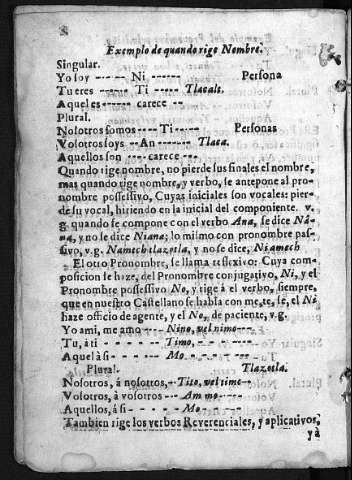 8
Exemplo de quando rige Nombre.
Singular.
Yo soy ------ Ni ------ Persona
Tu eres ----- Ti ----- Tlacatl.
Aquel es ------ carece --
Plural.
Nosotros somos ---- Ti ---- Personas
Vosotros soys -- An ------- Tlaca.
Aquellos son --- carece ---.
Quando rige nombre, no pierde sus finales el nombre,
mas quando rige nombre, y verbo, se antepone al pro-
nombre possessivo, Cuyas iniciales son vocales: pier-
de su vocal, hiriendo en la inicial del componente. v.
g. quando se compone con el verbo Ana, se dice Ná-
na, y no se dice Niana; lo mismo con pronombre pas-
sivo, v.g. Namechtlazotla, y no se dice, Niamech
El otro Pronombre, se llama reflexivo: Cuya com-
posicion se haze, del Pronombre conjugativo, Ni, y el
Pronombre possessivo No, y rige à el verbo, siempre,
que en nuestro Castellano se habla con me, te, sé, el Ni
haze officio de agente, y el No, de paciente, v.g.
Yo ami, me amo --- Nino, vel nimo ---
Tu, à ti - - - - - - - Timo, - - - ----
Aquel à si - - - - - - Mo. - - - - ----
Plural. Tlazotla.
Nosotros, á nosotros, - Tito, vel timo --
Vosotros, à vosotros --- Ammo -----
Aquellos, á si - - - - - Mo. - - - ----
Tambien rige los verbos Reverenciales, y aplicativos,
yà